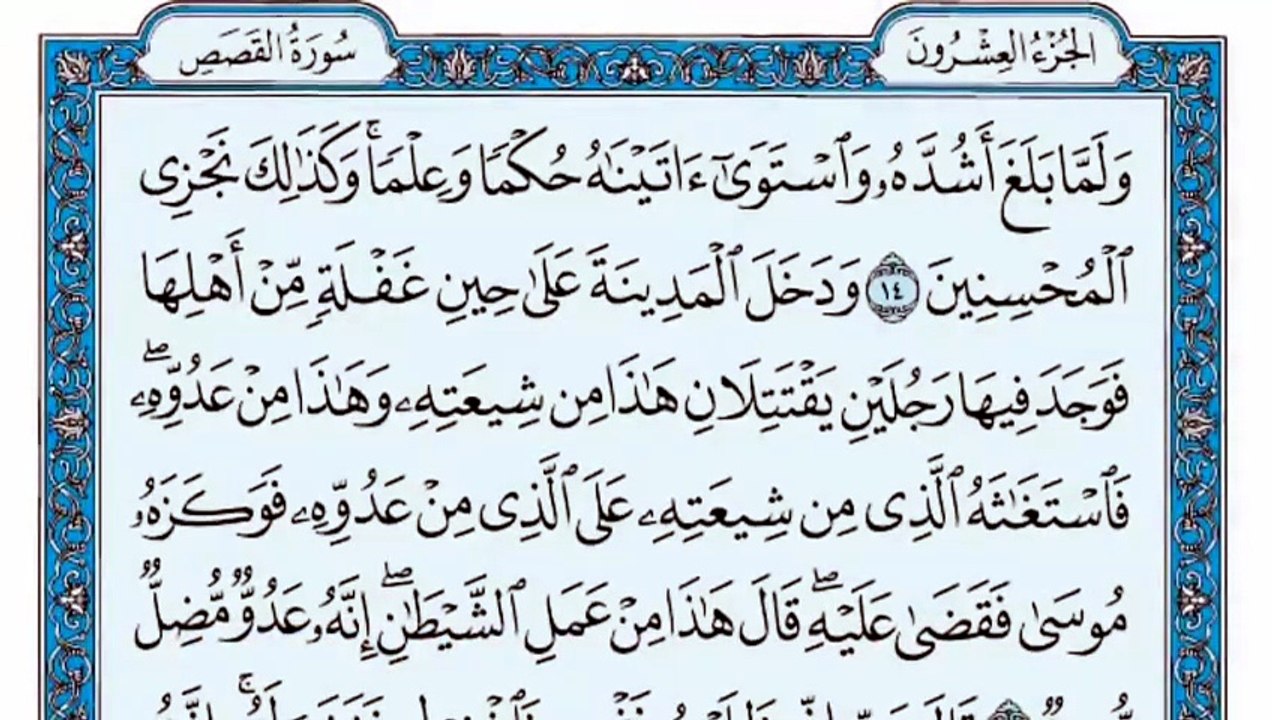 الجُزْءُ العِشْرُونَ
سُورَةُ القَصَصِ
وَلَمَّا بَلَغَ أَشُدَّهُۥ وَٱسْتَوَىٰٓ ءَاتَيْنَٰهُ حُكْمًا وَعِلْمًا ۚ وَكَذَٰلِكَ نَجْزِى
ٱلْمُحْسِنِينَ ١٤ وَدَخَلَ ٱلْمَدِينَةَ عَلَىٰ حِينِ غَفْلَةٍ مِّنْ أَهْلِهَا
فَوَجَدَ فِيهَا رَجُلَيْنِ يَقْتَتِلَانِ هَٰذَا مِن شِيعَتِهِۦ وَهَٰذَا مِنْ عَدُوِّهِۦ ۖ
فَٱسْتَغَٰثَهُ ٱلَّذِى مِن شِيعَتِهِۦ عَلَى ٱلَّذِى مِنْ عَدُوِّهِۦ فَوَكَزَهُۥ
مُوسَىٰ فَقَضَىٰ عَلَيْهِ ۖ قَالَ هَٰذَا مِنْ عَمَلِ ٱلشَّيْطَٰنِ ۖ إِنَّهُۥ عَدُوٌّ مُّضِلٌّ